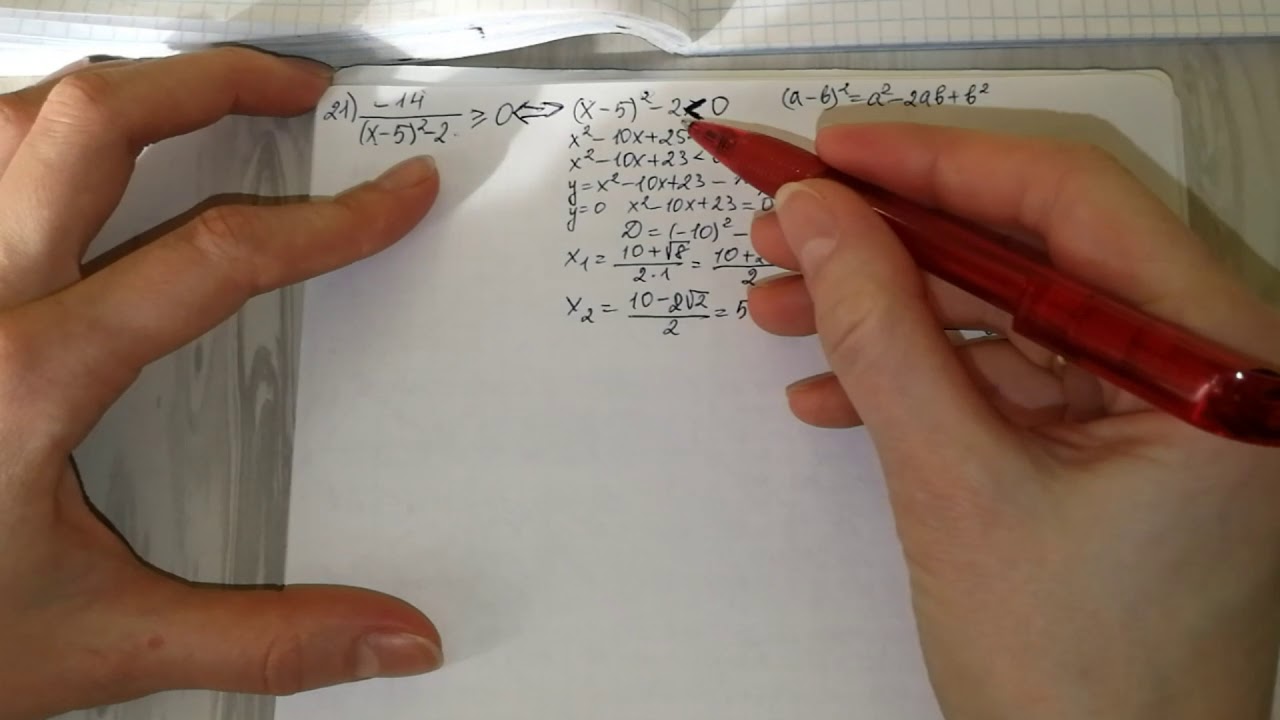 21) -14/((x-5)²-2) ≥ 0 ⟺ (x-5)²-2 < 0 (a-b)²=a²-2ab+b²
x²-10x+25
x²-10x+23 <
y=x²-10x+23 -
y=0 x²-10x+23=0
D=(-10)²-
x₁ = (10+√8)/(2·1) = (10+2)/2
x₂ = (10-2√2)/2 = 5